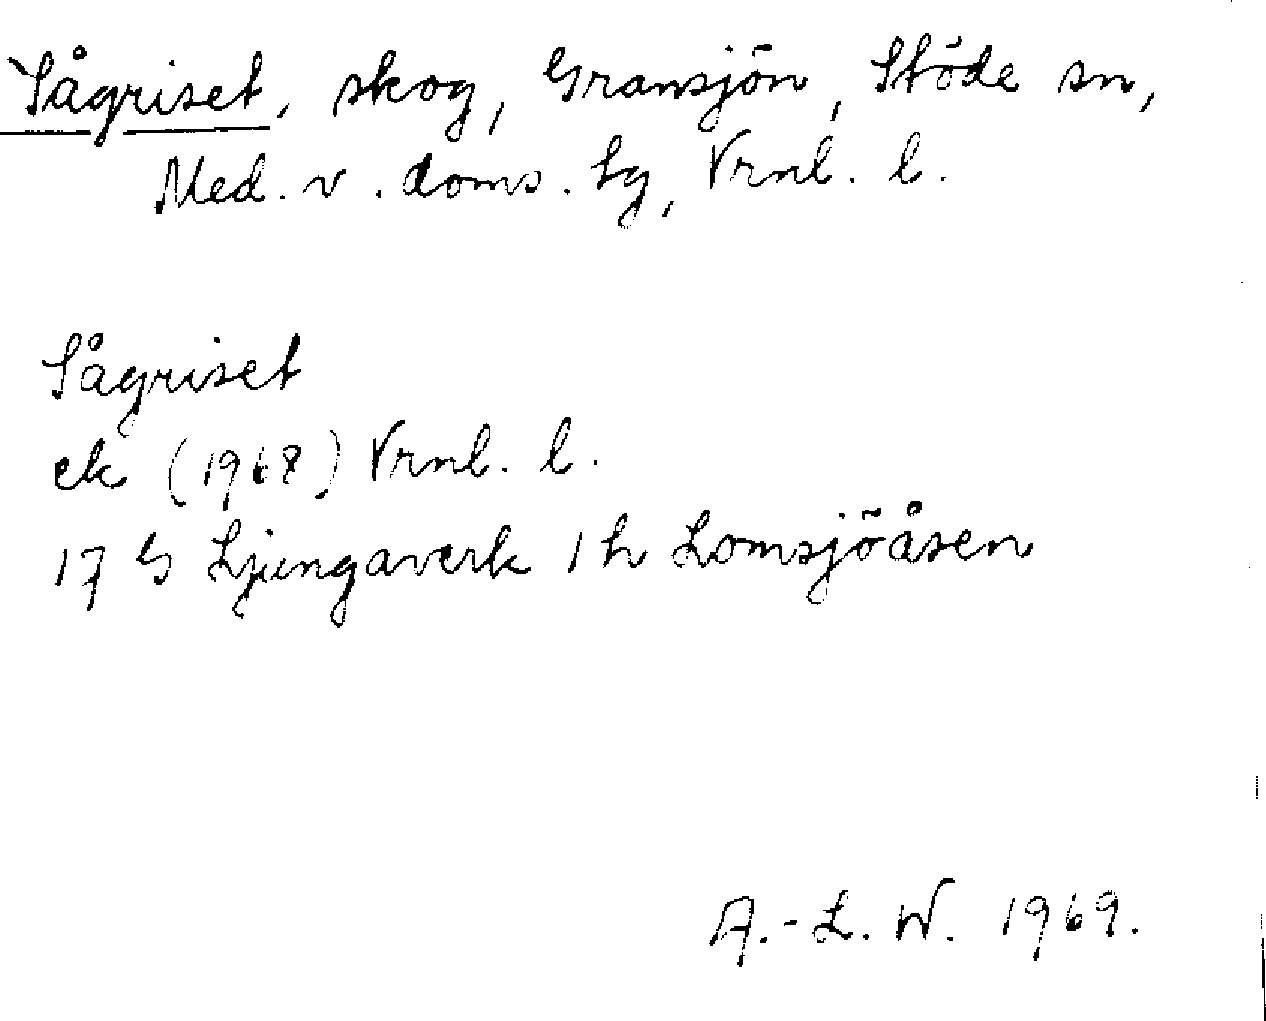 Sågriset, skog, Gransjön, Stöde sn,
Med. v. doms. tg, Vrnl. l.
Sågriset
ek (1968) Vrnl. l.
17 G Ljungaverk 1 h Lomsjöåsen
A.-L. W. 1969.